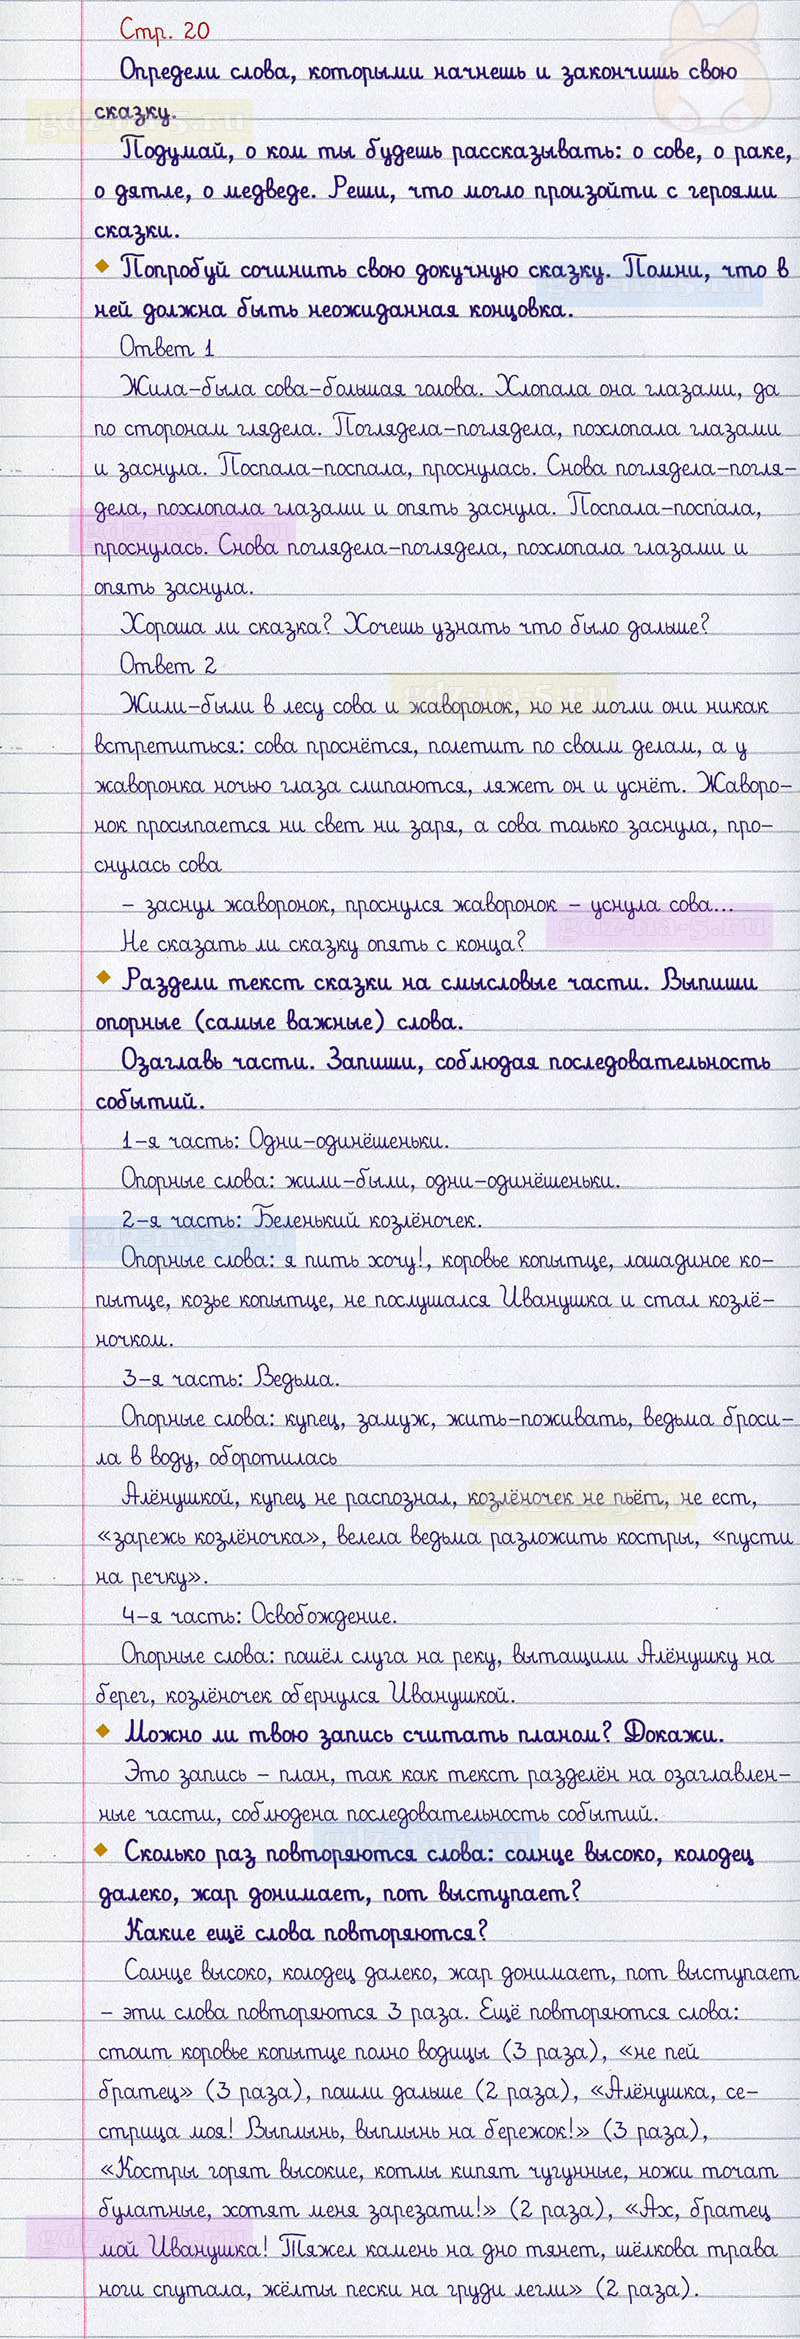 Стр. 20
Определи слова, которыми начнешь и закончишь свою
сказку.
gdz-na-5.ru
Подумай, о ком ты будешь рассказывать: о сове, о раке,
о дятле, о медведе. Реши, что могло произойти с героями
сказки.
Попробуй сочинить свою докучную сказку. Помни, что в
gdz-na-5.ru
ней должна быть неожиданная концовка.
Ответ 1
Жила-была сова-большая голова. Хлопала она глазами, да
по сторонам глядела. Поглядела-поглядела, похлопала глазами
и заснула. Поспала-поспала, проснулась. Снова поглядела-погля-
дела, похлопала глазами и опять заснула. Поспала-поспала,
gdz-na-5.ru
проснулась. Снова поглядела-поглядела, похлопала глазами и
опять заснула.
Хороша ли сказка? Хочешь узнать что было дальше?
Ответ 2
gdz-na-5.ru
Жили-были в лесу сова и жаворонок, но не могли они никак
встретиться: сова проснётся, полетит по своим делам, а у
жаворонка ночью глаза слипаются, ляжет он и уснёт. Жаворо-
нок просыпается ни свет ни заря, а сова только заснула, про-
снулась сова
- заснул жаворонок, проснулся жаворонок - уснула сова...
gdz-na-5.ru
Не сказать ли сказку опять с конца?
Раздели текст сказки на смысловые части. Выпиши
опорные (самые важные) слова.
Озаглавь части. Запиши, соблюдая последовательность
событий.
1-я часть: Одни-одинёшеньки.
Опорные слова: жили-были, одни-одинёшеньки.
2-я часть: Беленький козлёночек.
gdz-na-5.ru
Опорные слова: я пить хочу!, коровье копытце, лошадиное ко-
пытце, козье копытце, не послушался Иванушка и стал козлё-
ночком.
3-я часть: Ведьма.
Опорные слова: купец, замуж, жить-поживать, ведьма броси-
ла в воду, оборотилась
Алёнушкой, купец не распознал, козлёночек не пьёт, не ест,
gdz-na-5.ru
«зарежь козлёночка», велела ведьма разложить костры, «пусти
на речку».
4-я часть: Освобождение.
Опорные слова: пошёл слуга на реку, вытащили Алёнушку на
берег, козлёночек обернулся Иванушкой.
Можно ли твою запись считать планом? Докажи.
Это запись - план, так как текст разделён на озаглавлен-
ные части, соблюдена последовательность событий.
gdz-na-5.ru
Сколько раз повторяются слова: солнце высоко, колодец
далеко, жар донимает, пот выступает?
Какие ещё слова повторяются?
Солнце высоко, колодец далеко, жар донимает, пот выступает
- эти слова повторяются 3 раза. Ещё повторяются слова:
стоит коровье копытце полно водицы (3 раза), «не пей
братец» (3 раза), пошли дальше (2 раза), «Алёнушка, се-
стрица моя! Выплынь, выплынь на бережок!» (3 раза),
«Костры горят высокие, котлы кипят чугунные, ножи точат
булатные, хотят меня зарезати!» (2 раза), «Ах, братец
gdz-na-5.ru
мой Иванушка! Тяжел камень на дно тянет, шёлкова трава
ноги спутала, жёлты пески на груди легли» (2 раза).